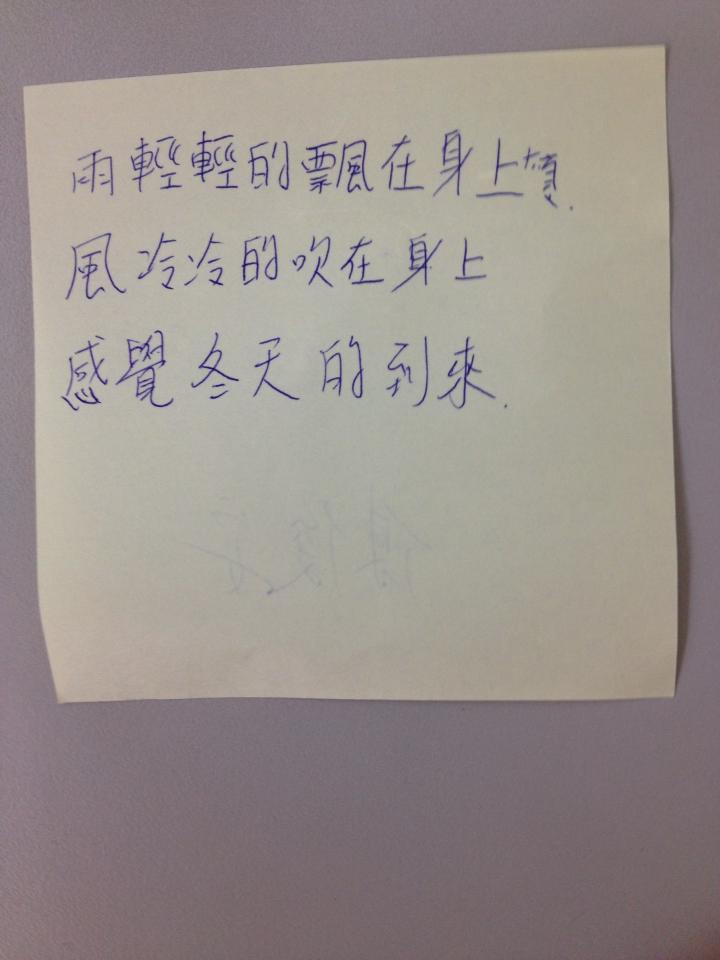 雨輕輕的飄在身上
風冷冷的吹在身上
感覺冬天的到來.